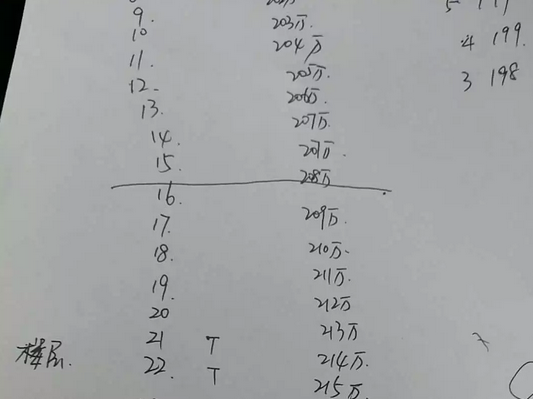 9. 203万
10 204万
11. 205万
12. 206万
13. 207万
14. 207万
15. 208万
16.
17. 209万
18. 210万
19. 211万
20 212万
21 T 213万
楼层. 22. T 214万
215万
4 199.
3 198